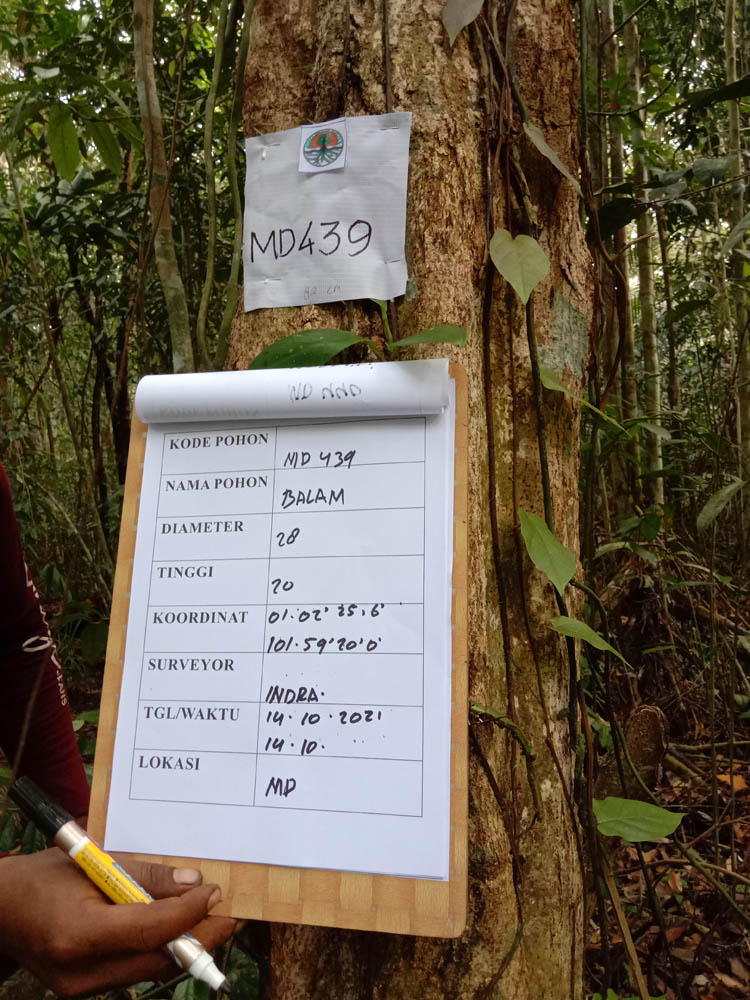 MD439
KODE POHON MD 439
NAMA POHON BALAM
DIAMETER 28
TINGGI 20
KOORDINAT 01.02' 35,6'
101.59'20'0'
SURVEYOR INDRA.
TGL/WAKTU 14.10.2021
14.10.
LOKASI MD